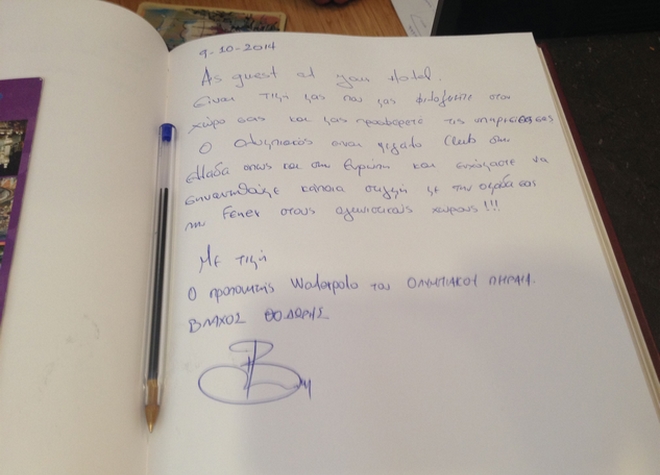 9-10-2014
As guest at your Hotel.
Είναι τιμή μας που μας φιλοξενείτε στον
χώρο σας και μας προσφέρατε τις υπηρεσίες σας
Ο Ολυμπιακός είναι μεγάλο Club στην
Ελλάδα όπως και στην Ευρώπη και ευχόμαστε να
συναντηθούμε κάποια στιγμή με την ομάδα σας
την Fener στους αγωνιστικούς χώρους!!!
Με τιμή
Ο προπονητής Waterpolo του ΟΛΥΜΠΙΑΚΟΥ ΠΕΙΡΑΙΑ.
ΒΛΑΧΟΣ ΘΟΔΩΡΗΣ